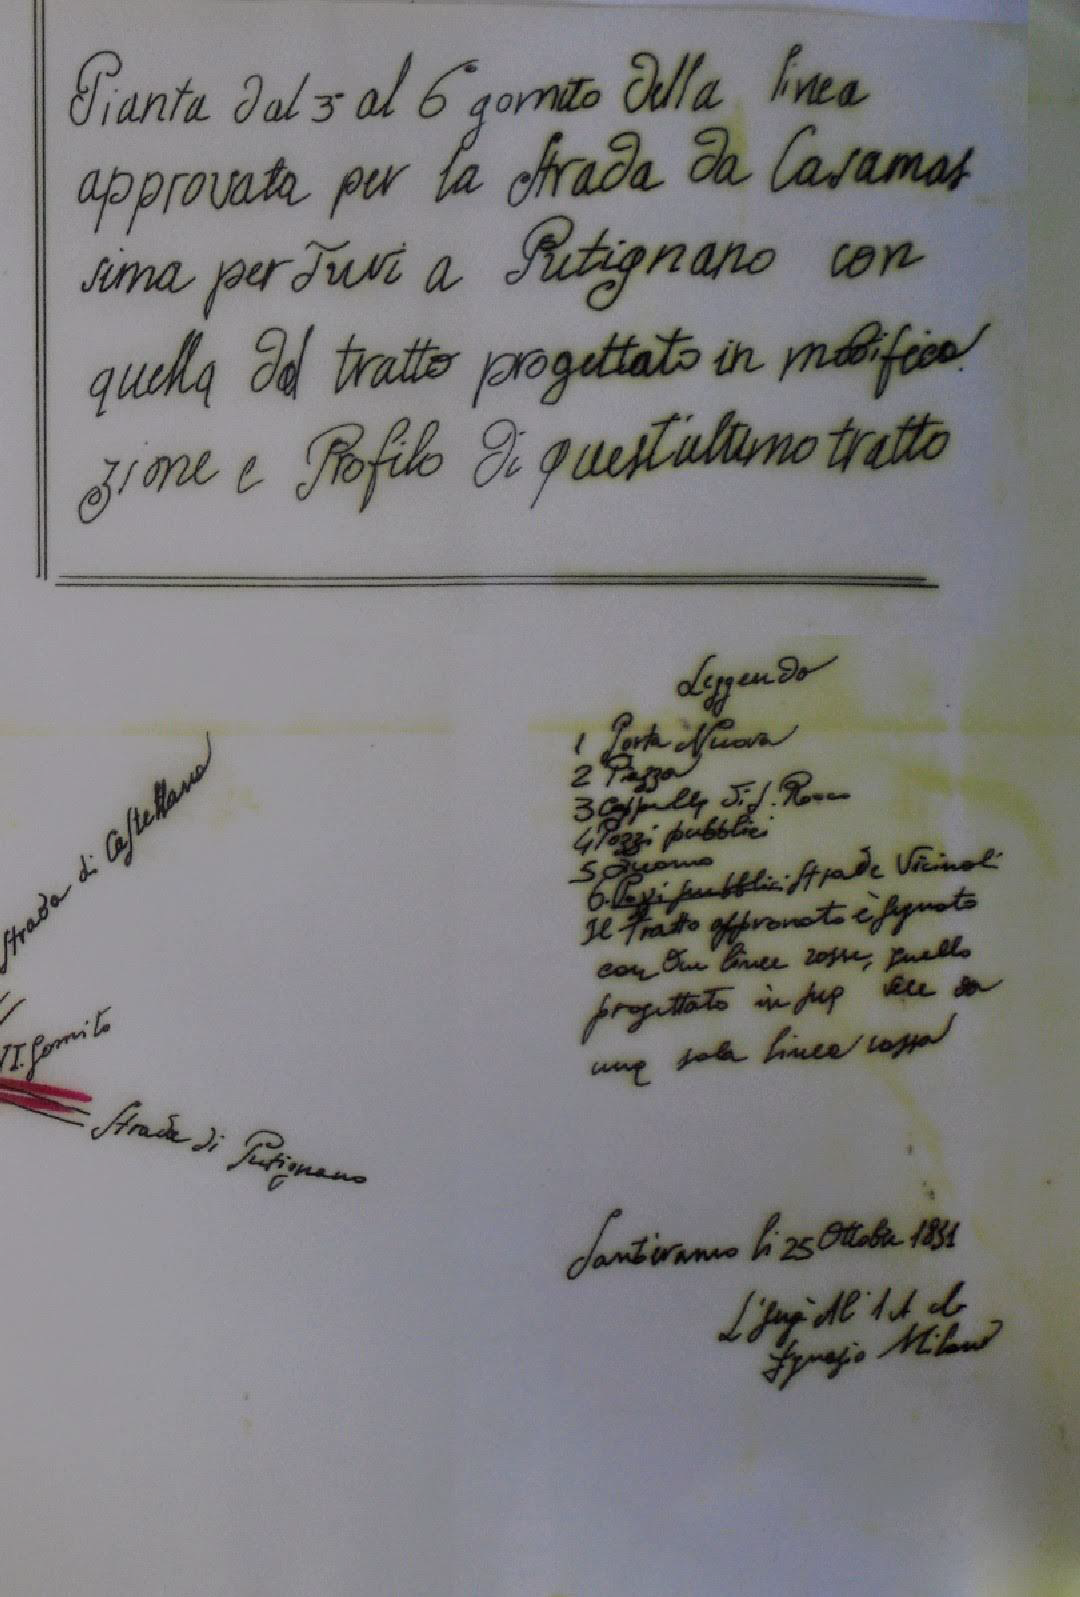 Pianta dal 3° al 6° gomito della linea
approvata per la strada da Casamas
sima per Turi a Putignano con
quella del tratto progettato in modifica
zione e Profilo di quest'ultimo tratto
Leggenda
1 Porta Nuova
2 Piazza
3 Cappella di S. Rocco
4 Pozzi pubblici
5
6. Pozzi pubblici Strade Vicinali
Il Tratto approvato è segnato
con due linee rosse, quello
progettato in sua vece da
una sola linea rossa
Strada di Castellana
VI. Gomito
Strada di Putignano
Santeramo li 25 Ottobre 1851
L'Ing
Ignazio Milano